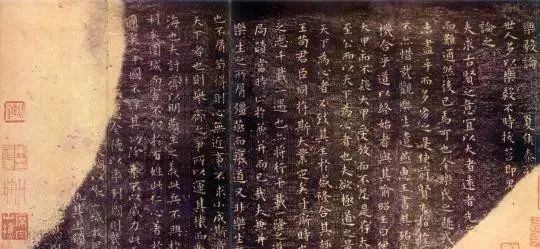 樂毅論 夏侯泰初
世人多以樂毅不時拔莒即墨
論之
夫求古賢之意宜以大者遠者先
而難通然後已焉可也今樂氏之趣
未盡乎而多劣之是使前賢
不亦惜哉觀樂生遺燕惠王書其殆
機合乎道以終始者與其喻昭王曰伊
大甲而不疑大甲受放而不怨是存大
至公而以天下為心者也夫欲極道之
天下為心者必致其主於盛隆合其趣
王苟君臣同符斯大業定矣于斯時也
之志千載一遇也亦將行千載一隆
局蹟當時止於兼并而已哉夫兼并
樂生之所屑彊燕而廢道又非樂生
也不屑苟得則心無近事不求小成斯意
天下者也則舉齊之事所以運其機而動
海也夫討齊以明燕主之義此兵不興於
利矣圍城而害不加於百姓此仁心著於
邇矣舉國不謀其功除暴不以威力此
全德以率列國則